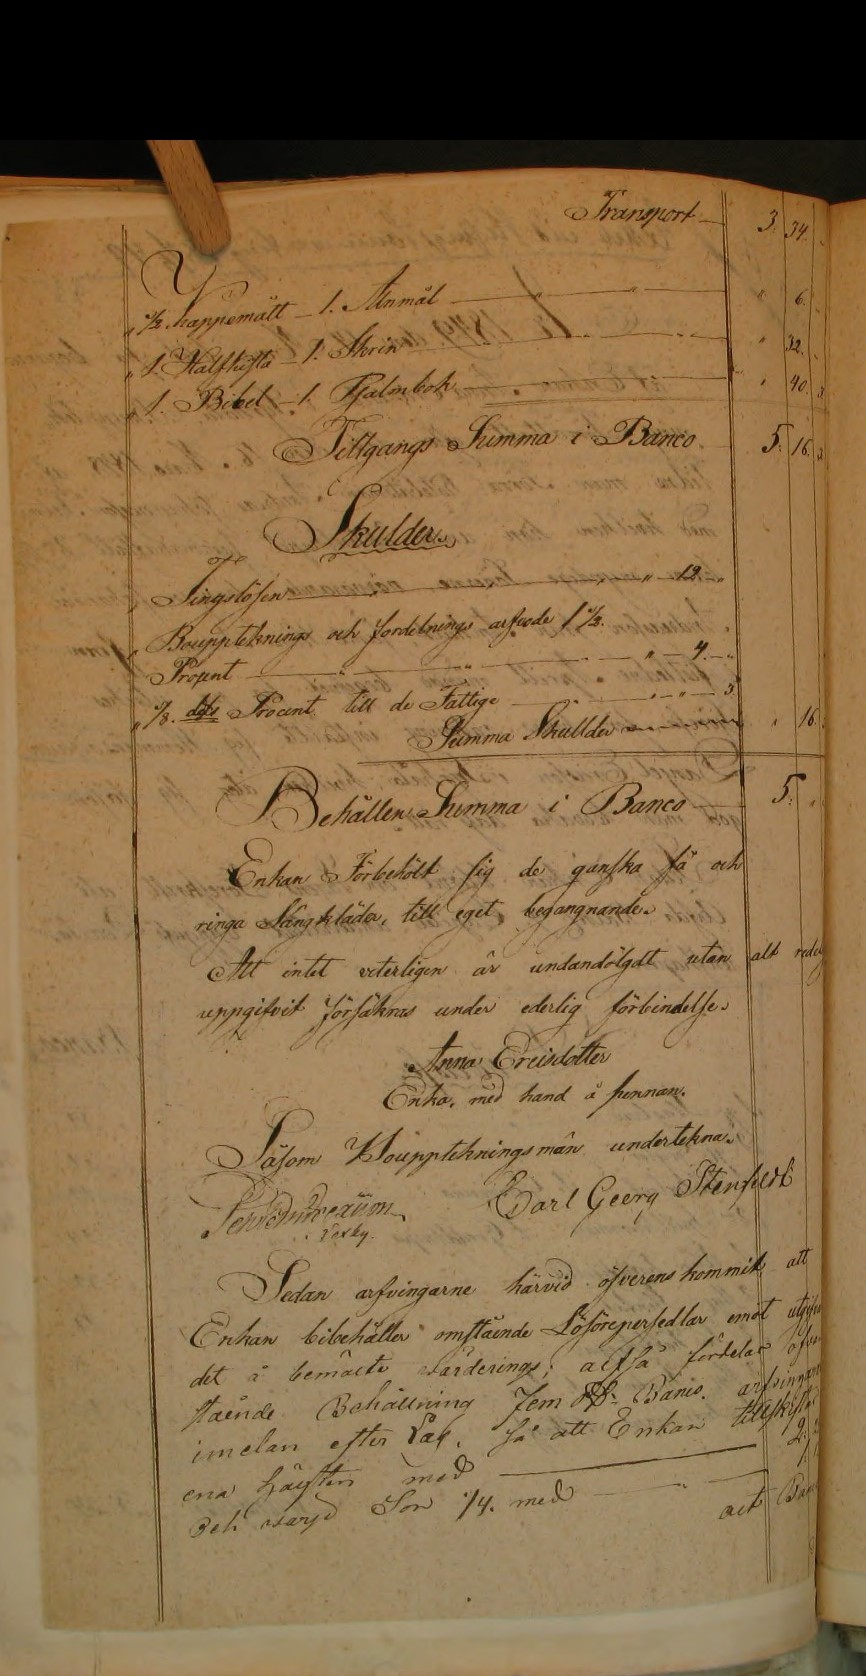 Transport 3. 34.
" ½. kappemått – 1. Allnmål " 6.
" 1. Halfkista – 1. Skrin " 32.
" 1. Bibel – 1. Psalmbok " 40.
Tillgangs Summa i Banco 5. 16.
Skulder.
Tingslösen " 12. "
Bouppteknings och fördelnings arfvode 1 ½.
Procent " 4. "
" ⅛. dels Procent till de Fattige
Summa Skullder " 16.
Behållen Summa i Banco 5. "
Enkan Förbehölt sig de ganska få och
ringa Sängkläder, till eget begagnande.
Att intet veterligen är undandölgdt utan alt
uppgifvit försäkras under ederlig förbindelse.
Anna Ericsdotter
Enka, med hand å pennan.
Såsom Bouppteknings män undertekna.
Carl Georg Stenfeldt
Sedan arfvingarne härvid öfverens kommit att
Enkan bibehåller omstående Lösörepersedlar emot
det å bemälte värderings; altså fördelas
stående Behållning Fem Banco.
imelan efter Lag. så att Enkan
ena häften med 2.
Son ¼. med 1.